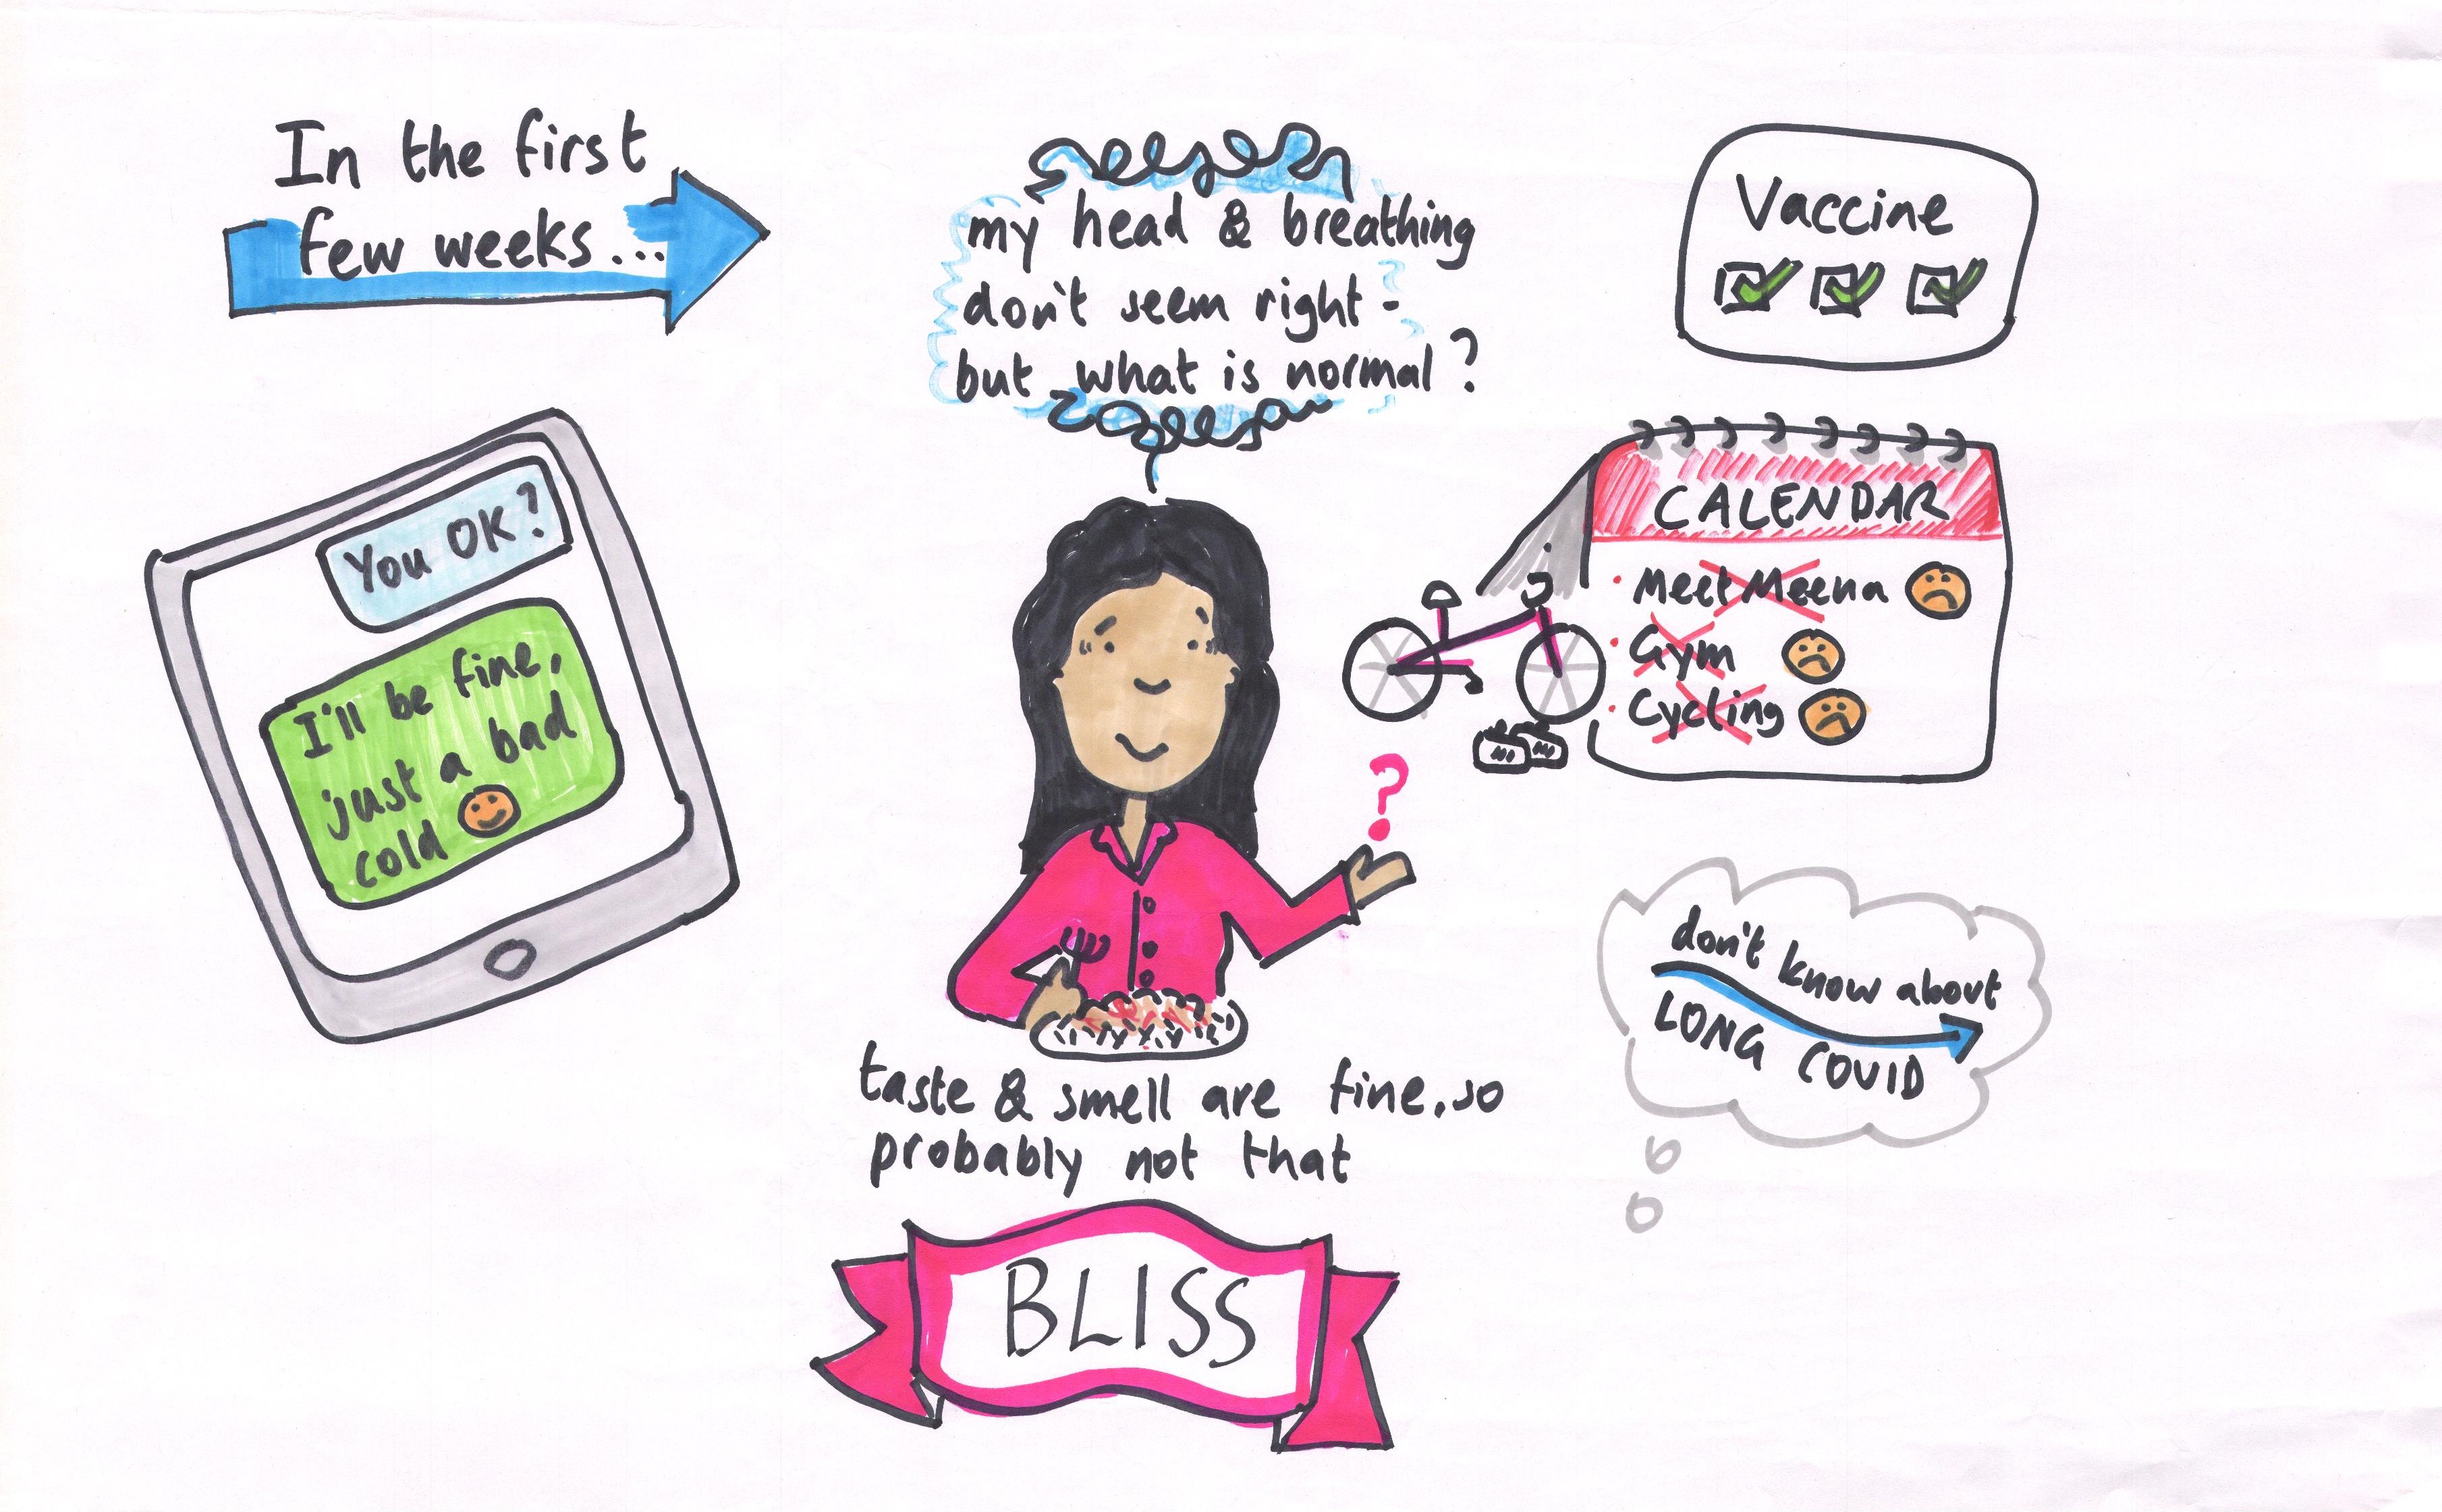 In the first
few weeks...
my head & breathing
don't seem right -
but what is normal?
Vaccine
You OK?
I'll be fine,
just a bad
cold
CALENDAR
• Meet Meena
• Gym
• Cycling
?
don't know about
LONG COVID
taste & smell are fine, so
probably not that
BLISS